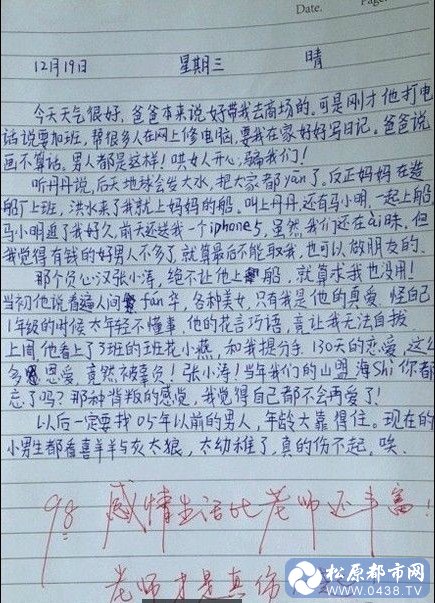 Date.
Page.
12月19日 星期三 晴
今天天气很好,爸爸本来说好带我去商场的。可是刚才他打电
话说要加班,帮很多人在网上修电脑,要我在家好好写日记。爸爸说
画不算话。男人都是这样!哄女人开心,骗我们!
听丹丹说,后天地球会发大水,把大家都yān了。反正妈妈在造
船厂上班,洪水来了我就上妈妈的船。叫上丹丹还有马小明,一起上船,
马小明追了我好久,前天还送我一个iphone5,虽然我们还在ai昧。但
我觉得有钱的好男人不多了,就算最后不能取我,也可以做朋友的。
那个负心汉张小涛,绝不让他上船,就算求我也没用!
当初他说看遍人间fan华,各种美女,只有我是他的真爱,怪自己
1年级的时候太年轻不懂事,他的花言巧语,竟让我无法自拔
上周,他看上了3班的班花小燕,和我提分手,130天的恋爱,这么
多恩爱,竟然被辜负!张小涛!当年我们的山盟海Shi你都
忘了吗?那种背叛的感觉,我觉得自己都不会再爱了!
以后一定要找05年以前的男人,年龄大靠得住。现在的
小男生都看喜羊羊与灰太狼,太幼稚了,真的伤不起,唉
98 感情生活比老师还丰富!
老师才是真伤
松原都市网
WWW.0438.TV